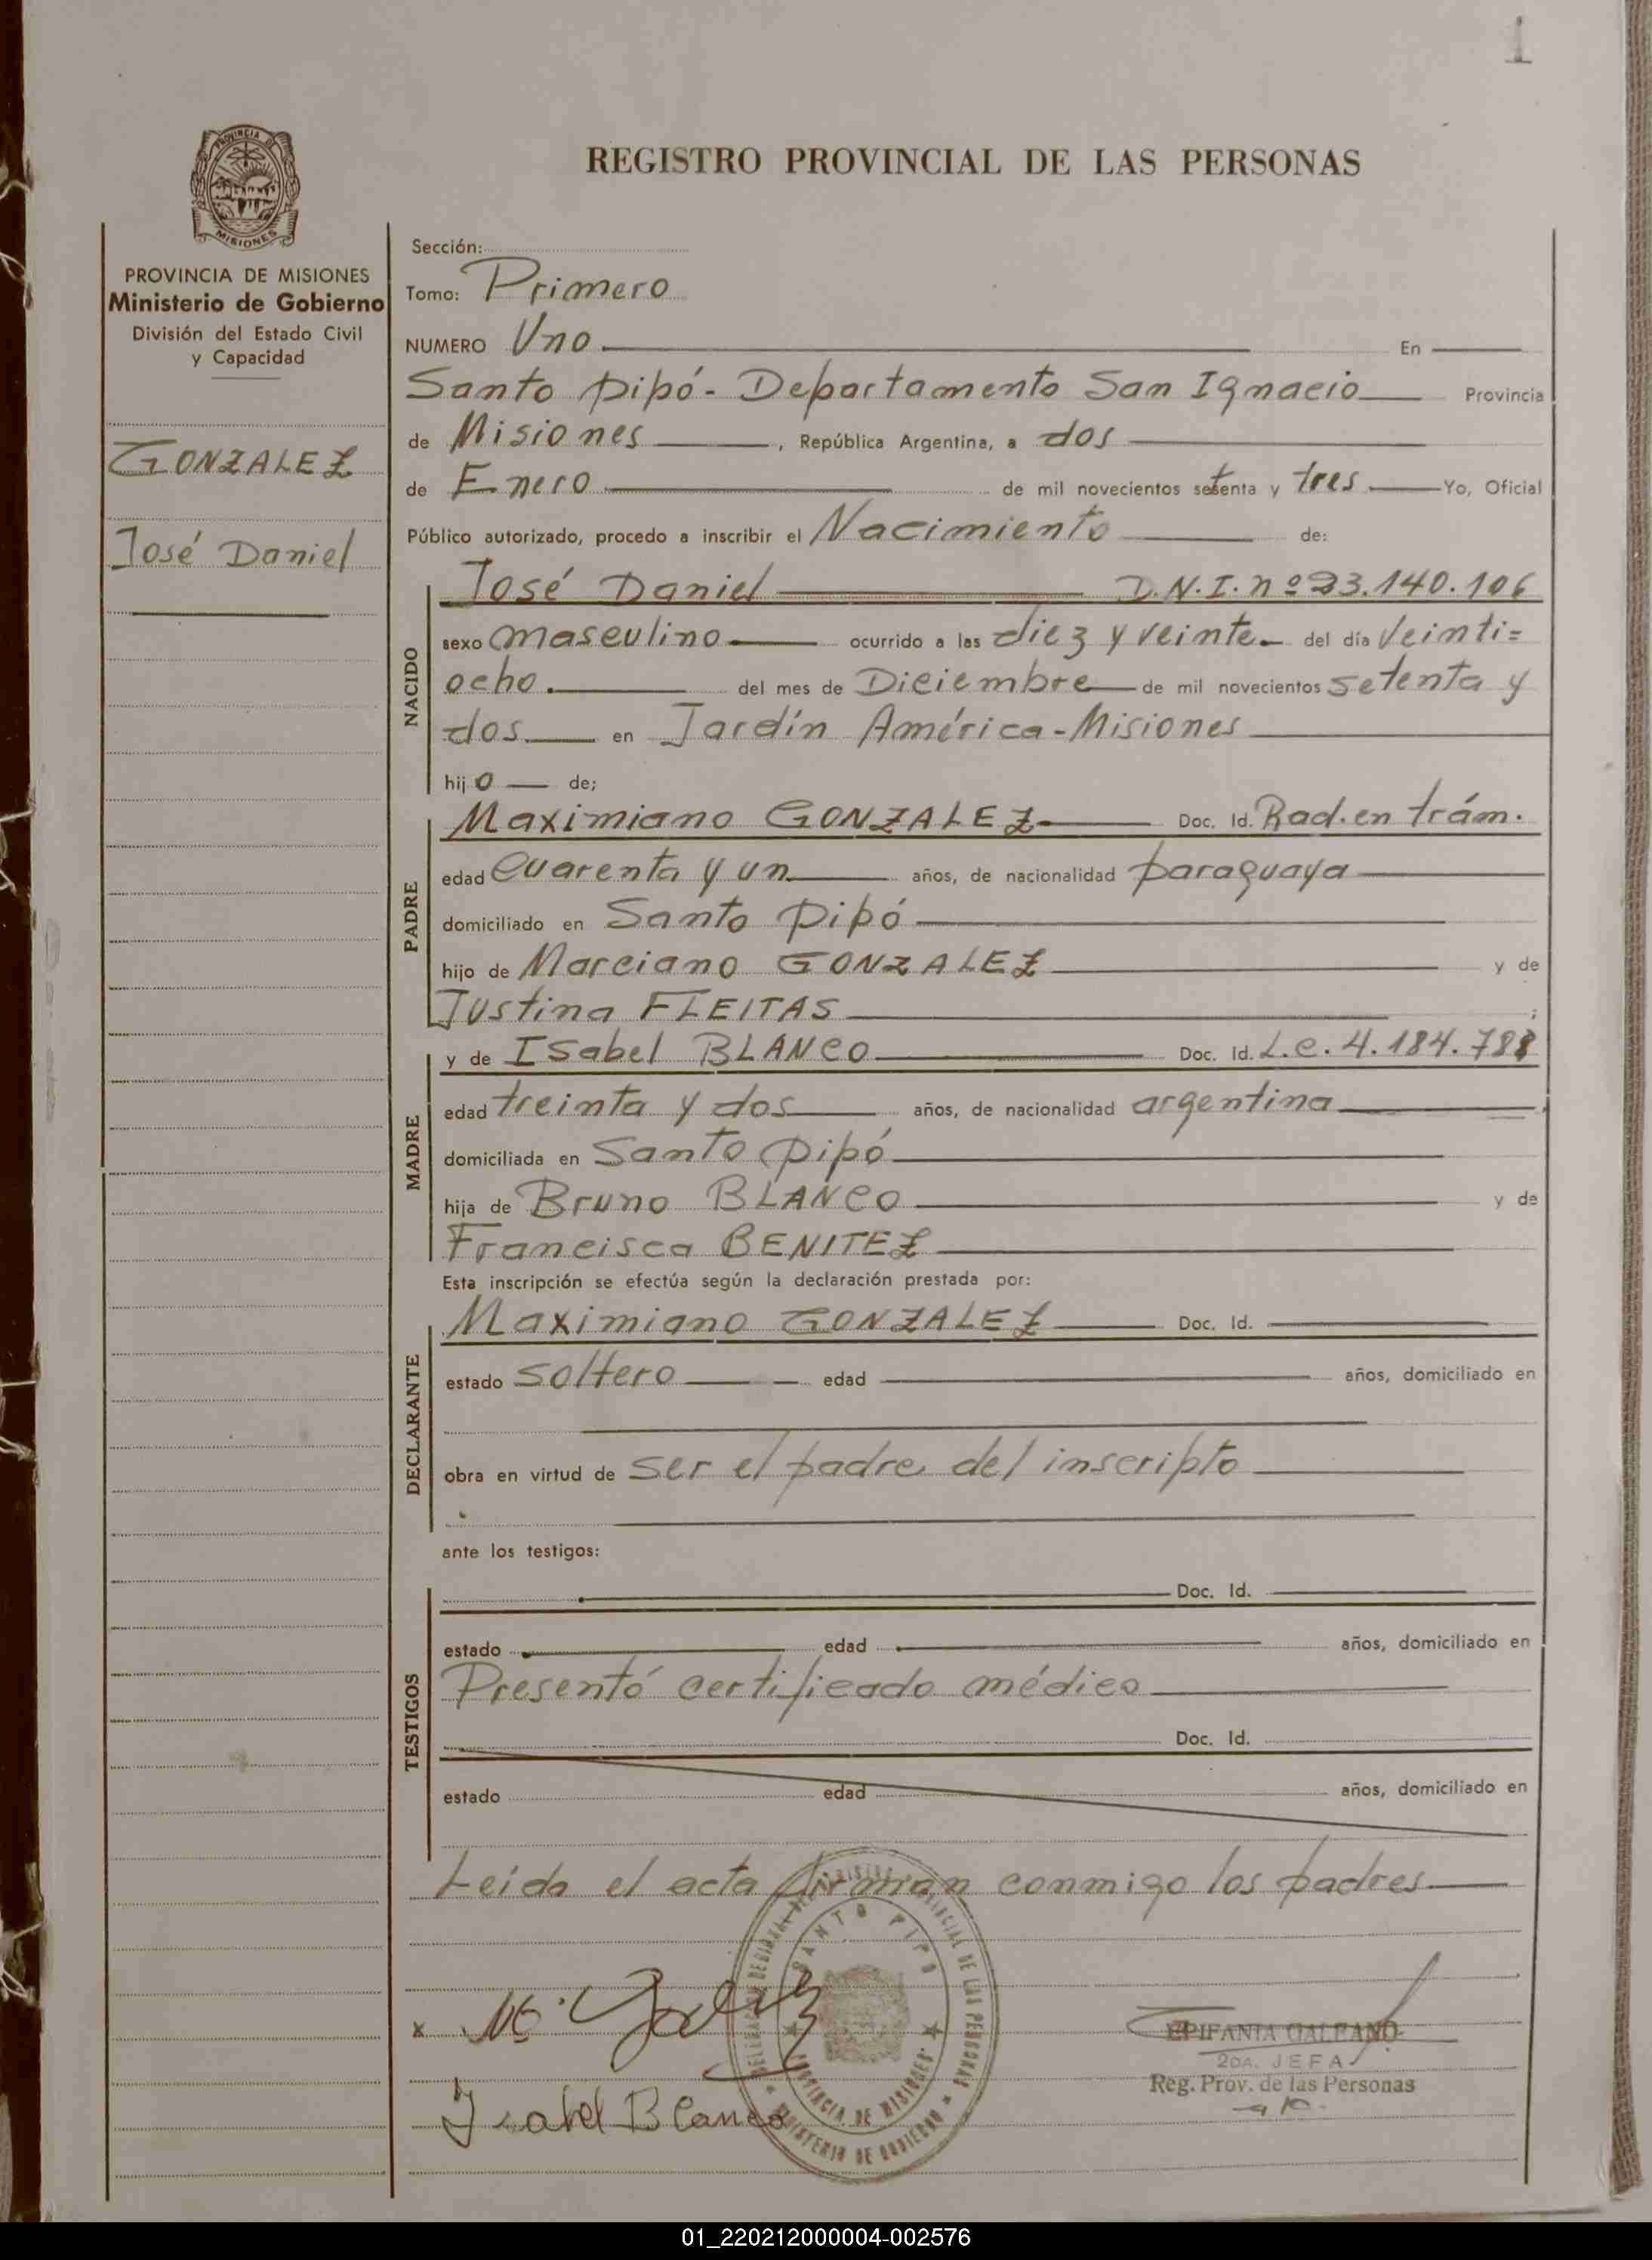 1
PROVINCIA DE
MISIONES
REGISTRO PROVINCIAL DE LAS PERSONAS
PROVINCIA DE MISIONES
Ministerio de Gobierno
División del Estado Civil
y Capacidad
GONZALEZ
José Daniel
Sección:
Tomo: Primero
NUMERO Uno En
Santo Pipó - Departamento San Ignacio Provincia
de Misiones , República Argentina, a dos
de Enero de mil novecientos setenta y tres Yo, Oficial
Público autorizado, procedo a inscribir el Nacimiento de:
NACIDO
José Daniel D.N.I. nº 23.140.106
sexo masculino ocurrido a las diez y veinte del día veinti=
ocho. del mes de Diciembre de mil novecientos setenta y
dos en Jardín América - Misiones
hijo de;
PADRE
Maximiano GONZALEZ Doc. Id. Rad. en trám.
edad cuarenta y un años, de nacionalidad paraguaya
domiciliado en Santo Pipó
hijo de Marciano GONZALEZ y de
Justina FLEITAS ;
MADRE
y de Isabel BLANCO Doc. Id. L.C. 4.184.788
edad treinta y dos años, de nacionalidad argentina
domiciliada en Santo Pipó
hija de Bruno BLANCO y de
Francisca BENITEZ
Esta inscripción se efectúa según la declaración prestada por:
DECLARANTE
Maximiano GONZALEZ Doc. Id.
estado soltero edad años, domiciliado en
obra en virtud de ser el padre del inscripto
ante los testigos:
TESTIGOS
Doc. Id.
estado edad años, domiciliado en
Presentó certificado médico
Doc. Id.
estado edad años, domiciliado en
Leída el acta firman conmigo los padres
SANTO PIPO
PROVINCIA DE MISIONES
MINISTERIO DE GOBIERNO
PROVINCIAL DE LAS PERSONAS
x
Isabel Blanco
EPIFANIA GALEANO
2DA. JEFA
Reg. Prov. de las Personas
01_220212000004-002576